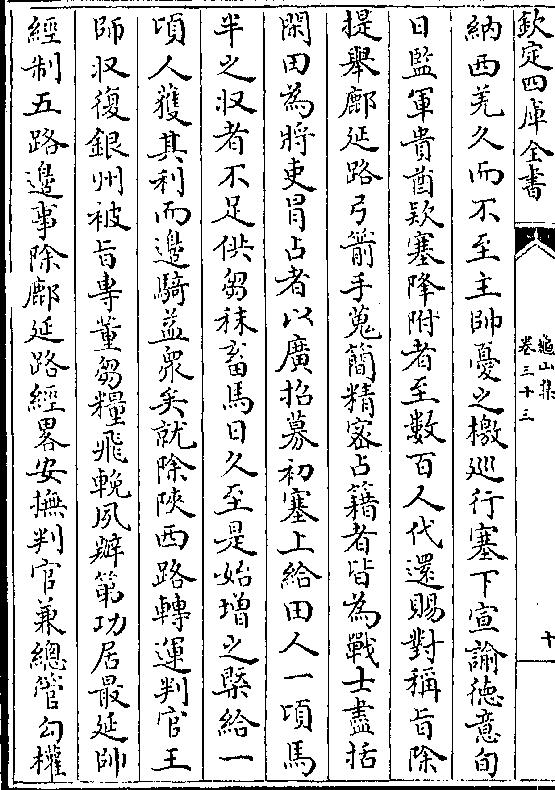 欽定四庫全書
龜山集
卷三十三
十
納西羌久而不至主帥憂之檄廵行塞下宣諭徳意旬
日監軍貴酋欵塞降附者至數百人代還賜對稱旨除
提舉鄜延路弓箭手蒐簡精宻占籍者皆為戰士盡括
閑田為將吏冐占者以廣招募初塞上給田人一頃馬
半之収者不足供芻秣畜馬日久至是始増之槩給一
頃人獲其利而邉騎益衆矣就除陜西路轉運判官王
師収復銀州被㫖專董芻糧飛輓夙辦第功居最延帥
經制五路邉事除鄜延路經畧安撫判官兼總管勾權